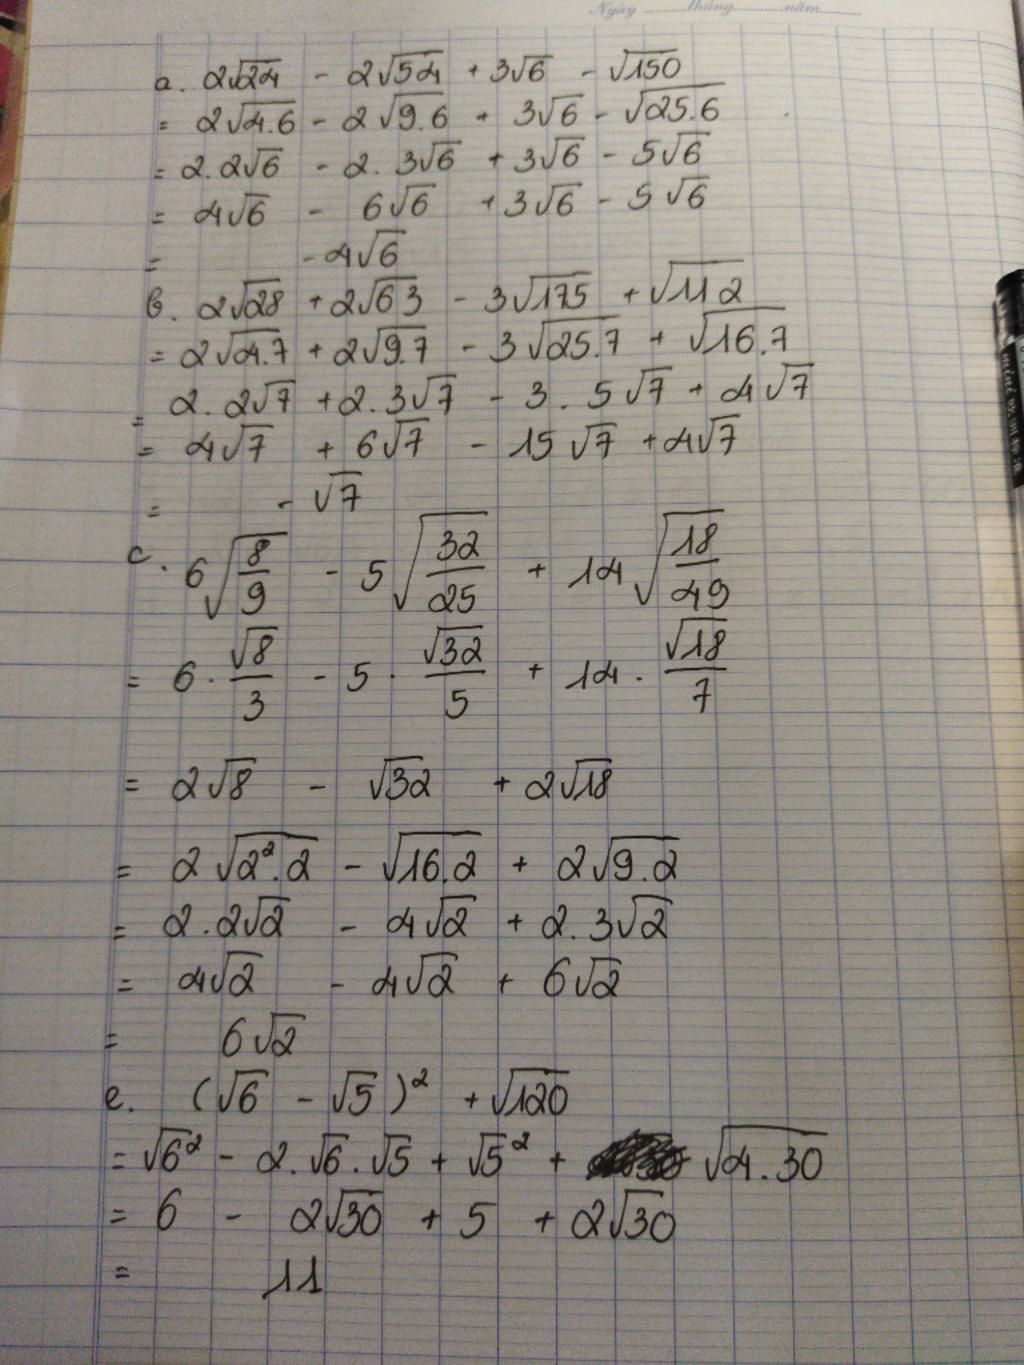 Ngày ........ tháng ........ năm ........
a. 2√24 - 2√54 + 3√6 - √150
= 2√4.6 - 2√9.6 + 3√6 - √25.6
= 2.2√6 - 2.3√6 + 3√6 - 5√6
= 4√6 - 6√6 + 3√6 - 5√6
= -4√6
b. 2√28 + 2√63 - 3√175 + √112
= 2√4.7 + 2√9.7 - 3√25.7 + √16.7
= 2.2√7 + 2.3√7 - 3.5√7 + 4√7
= 4√7 + 6√7 - 15√7 + 4√7
= -√7
c. 6√(8/9) - 5√(32/25) + 14√(18/49)
= 6 . √8/3 - 5 . √32/5 + 14 . √18/7
= 2√8 - √32 + 2√18
= 2√2².2 - √16.2 + 2√9.2
= 2.2√2 - 4√2 + 2.3√2
= 4√2 - 4√2 + 6√2
= 6√2
e. (√6 - √5)² + √120
= √6² - 2.√6.√5 + √5² + √4.30
= 6 - 2√30 + 5 + 2√30
= 11